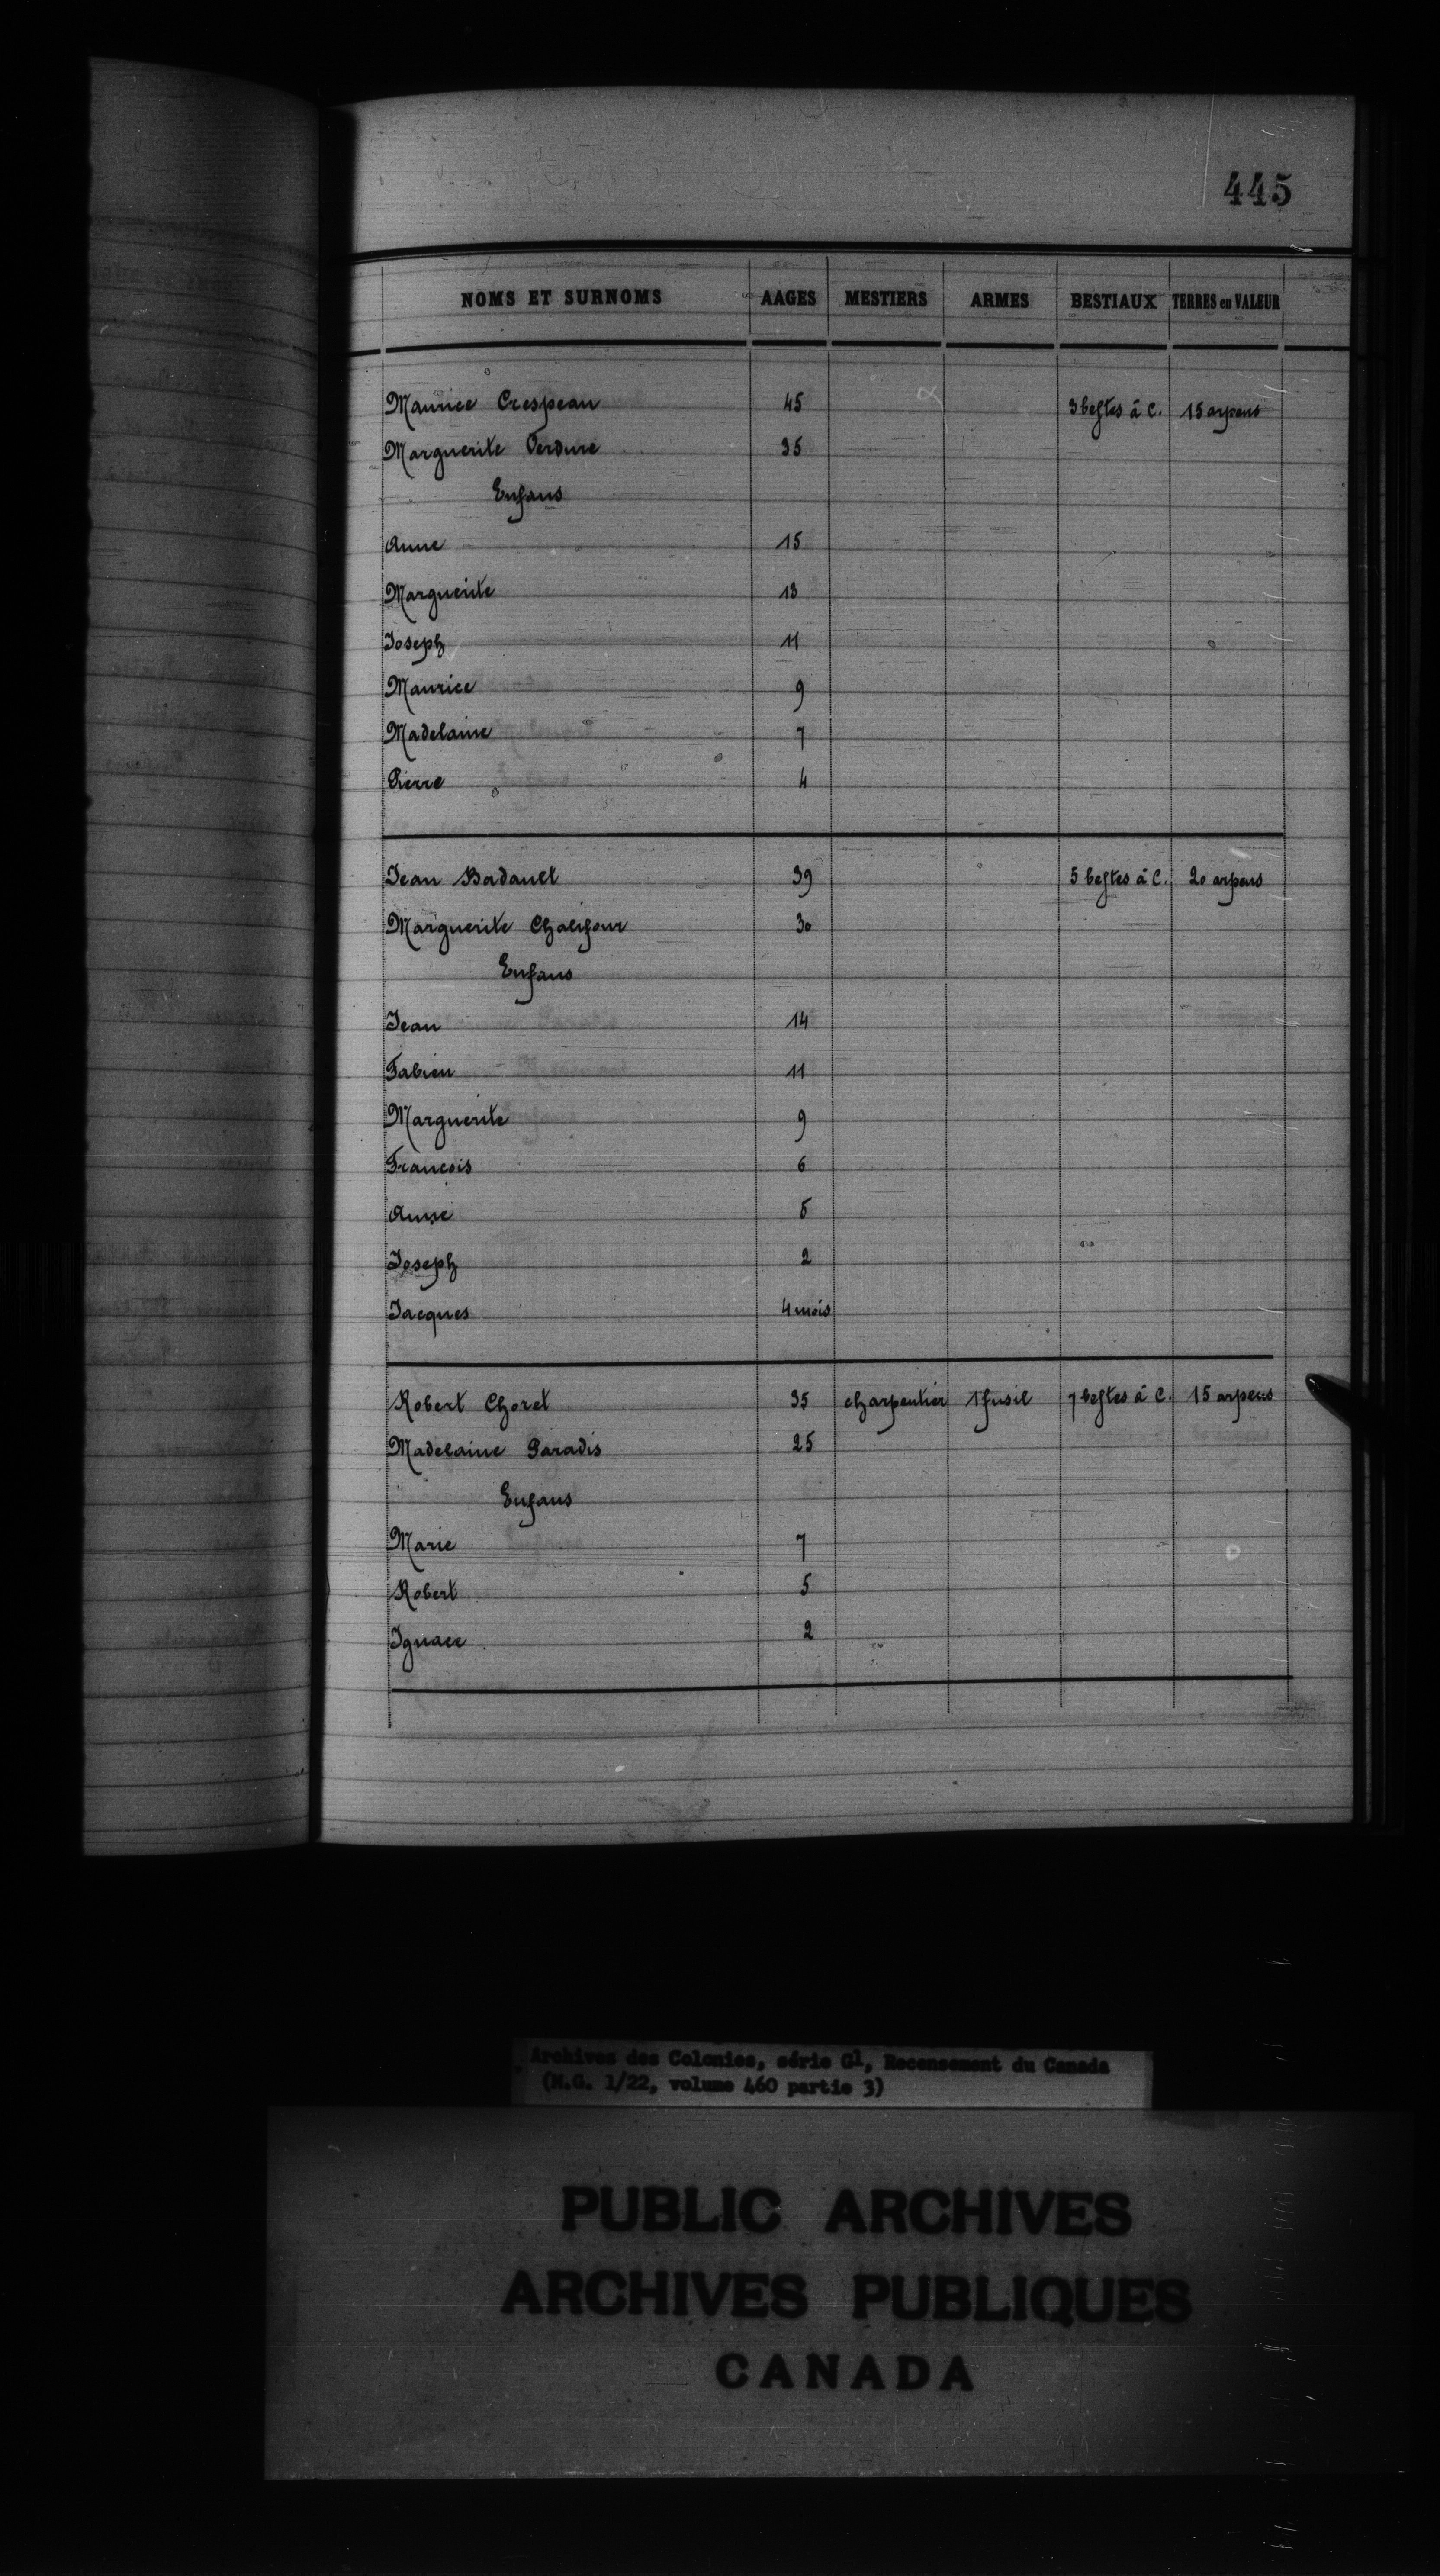 445
NOMS ET SURNOMS AAGES MESTIERS ARMES BESTIAUX TERRES en VALEUR
Maurice Crespeau 45 3 bestes à C. 15 arpens
Marguerite Verdure 35
Enfans
Anne 15
Marguerite 13
Joseph 11
Maurice 9
Madelaine 7
Pierre 4
Jean Badauet 39 5 bestes à C. 20 arpens
Marguerite Chalifour 30
Enfans
Jean 14
Fabien 11
Marguerite 9
Francois 6
Anne 5
Joseph 2
Jacques 4 mois
Robert Choret 35 charpentier 1 fusil 7 bestes à C. 15 arpens
Madelaine Paradis 25
Enfans
Marie 7
Robert 5
Ignace 2
Archives des Colonies, série G1, Recensement du Canada
(M.G. 1/22, volume 460 partie 3)
PUBLIC ARCHIVES
ARCHIVES PUBLIQUES
CANADA